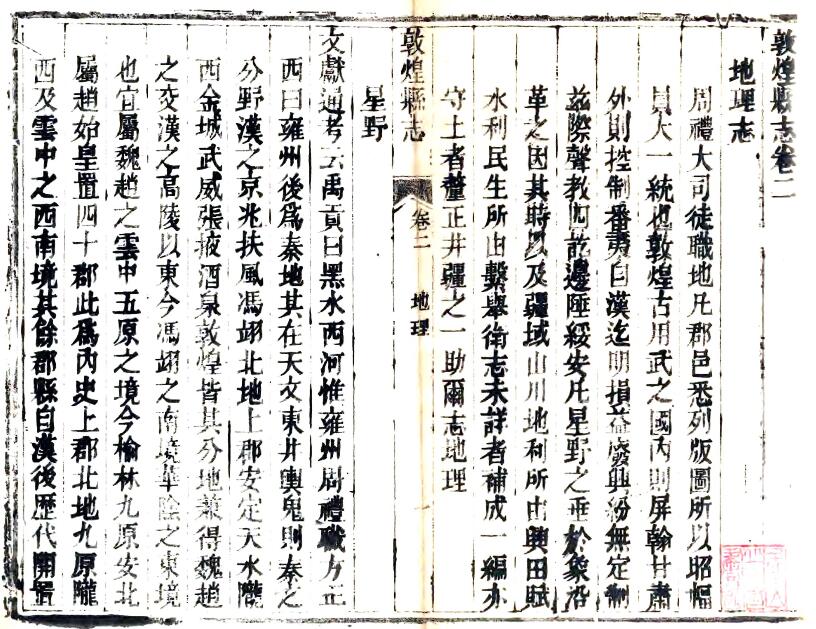 敦煌縣志卷二
地理志
周禮大司徒職地凡郡邑悉列版圖所以昭幅
員大一統也敦煌古用武之國內則屏翰甘肅
外則控制番夷自漢迄明損益廢興汾無定制
茲際聲教四訖邊陲綏安凡星野之垂於象沿
革之因其時以及疆域山川地利所由興田賦
水利民生所由繫舉衛志未詳者補成一編亦
守土者釐正井疆之一助爾志地理
敦煌縣志
卷二
地理
星野
文獻通考云禹貢曰黑水西河惟雍州周禮職方正
西曰雍州後爲秦地其在天文東井輿鬼則秦之
分野漢之京兆扶風馮翊北地上郡安定天水隴
西金城武威張掖酒泉敦煌皆其分地兼得魏趙
之交漢之高陵以東今馮翊之南境華陰之東境
也宜屬魏趙之雲中五原之境今榆林九原安北
屬趙始皇置四十郡此爲內史上郡北地九原隴
西及雲中之西南境其餘郡縣自漢後歷代開置